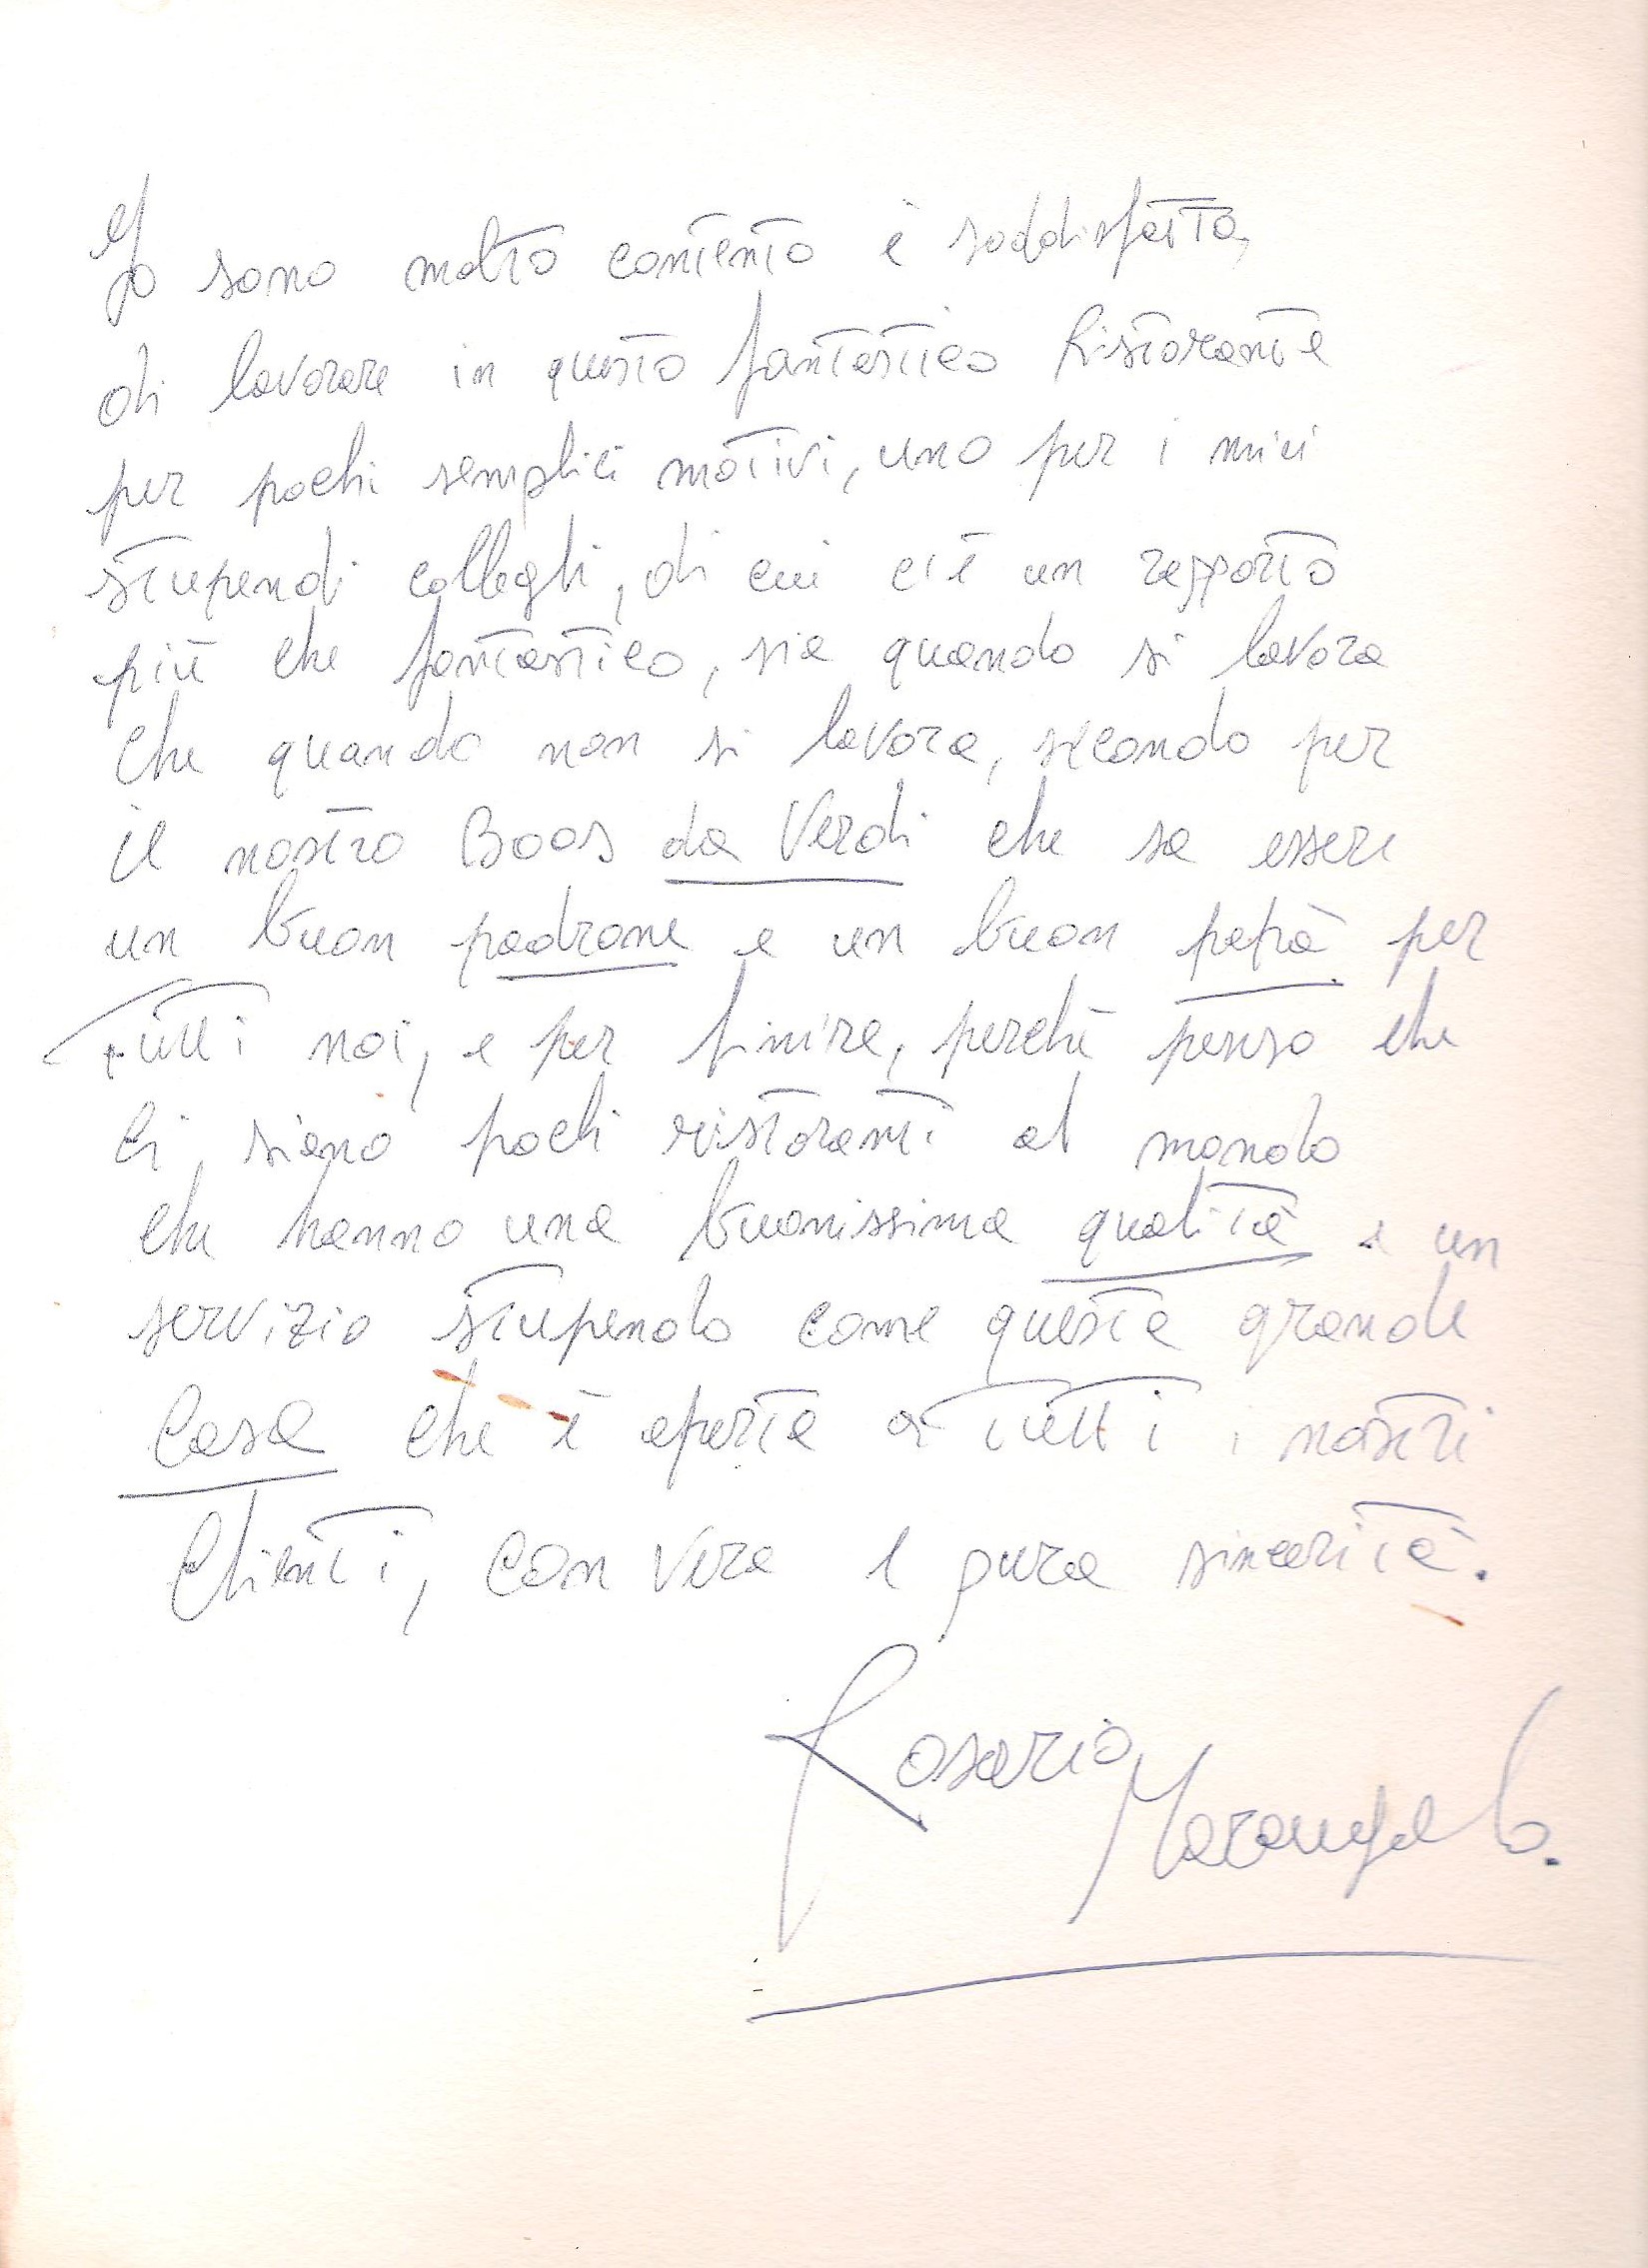 Io sono molto contento e soddisfatto,
di lavorare in questo fantastico Ristorante
per pochi semplici motivi, uno per i miei
stupendi colleghi, di cui c'è un rapporto
più che fantastico, sia quando si lavora
che quando non si lavora, secondo per
il nostro Boos da Verdi che sa essere
un buon padrone e un buon papà per
tutti noi, e per finire, perchè penso che
ci siano pochi ristoranti al mondo
che hanno una buonissima qualità e un
servizio stupendo come questa grande
Casa che è aperta a tutti i nostri
Clienti, con vera e pura sincerità.
Rosario
Marangolo.